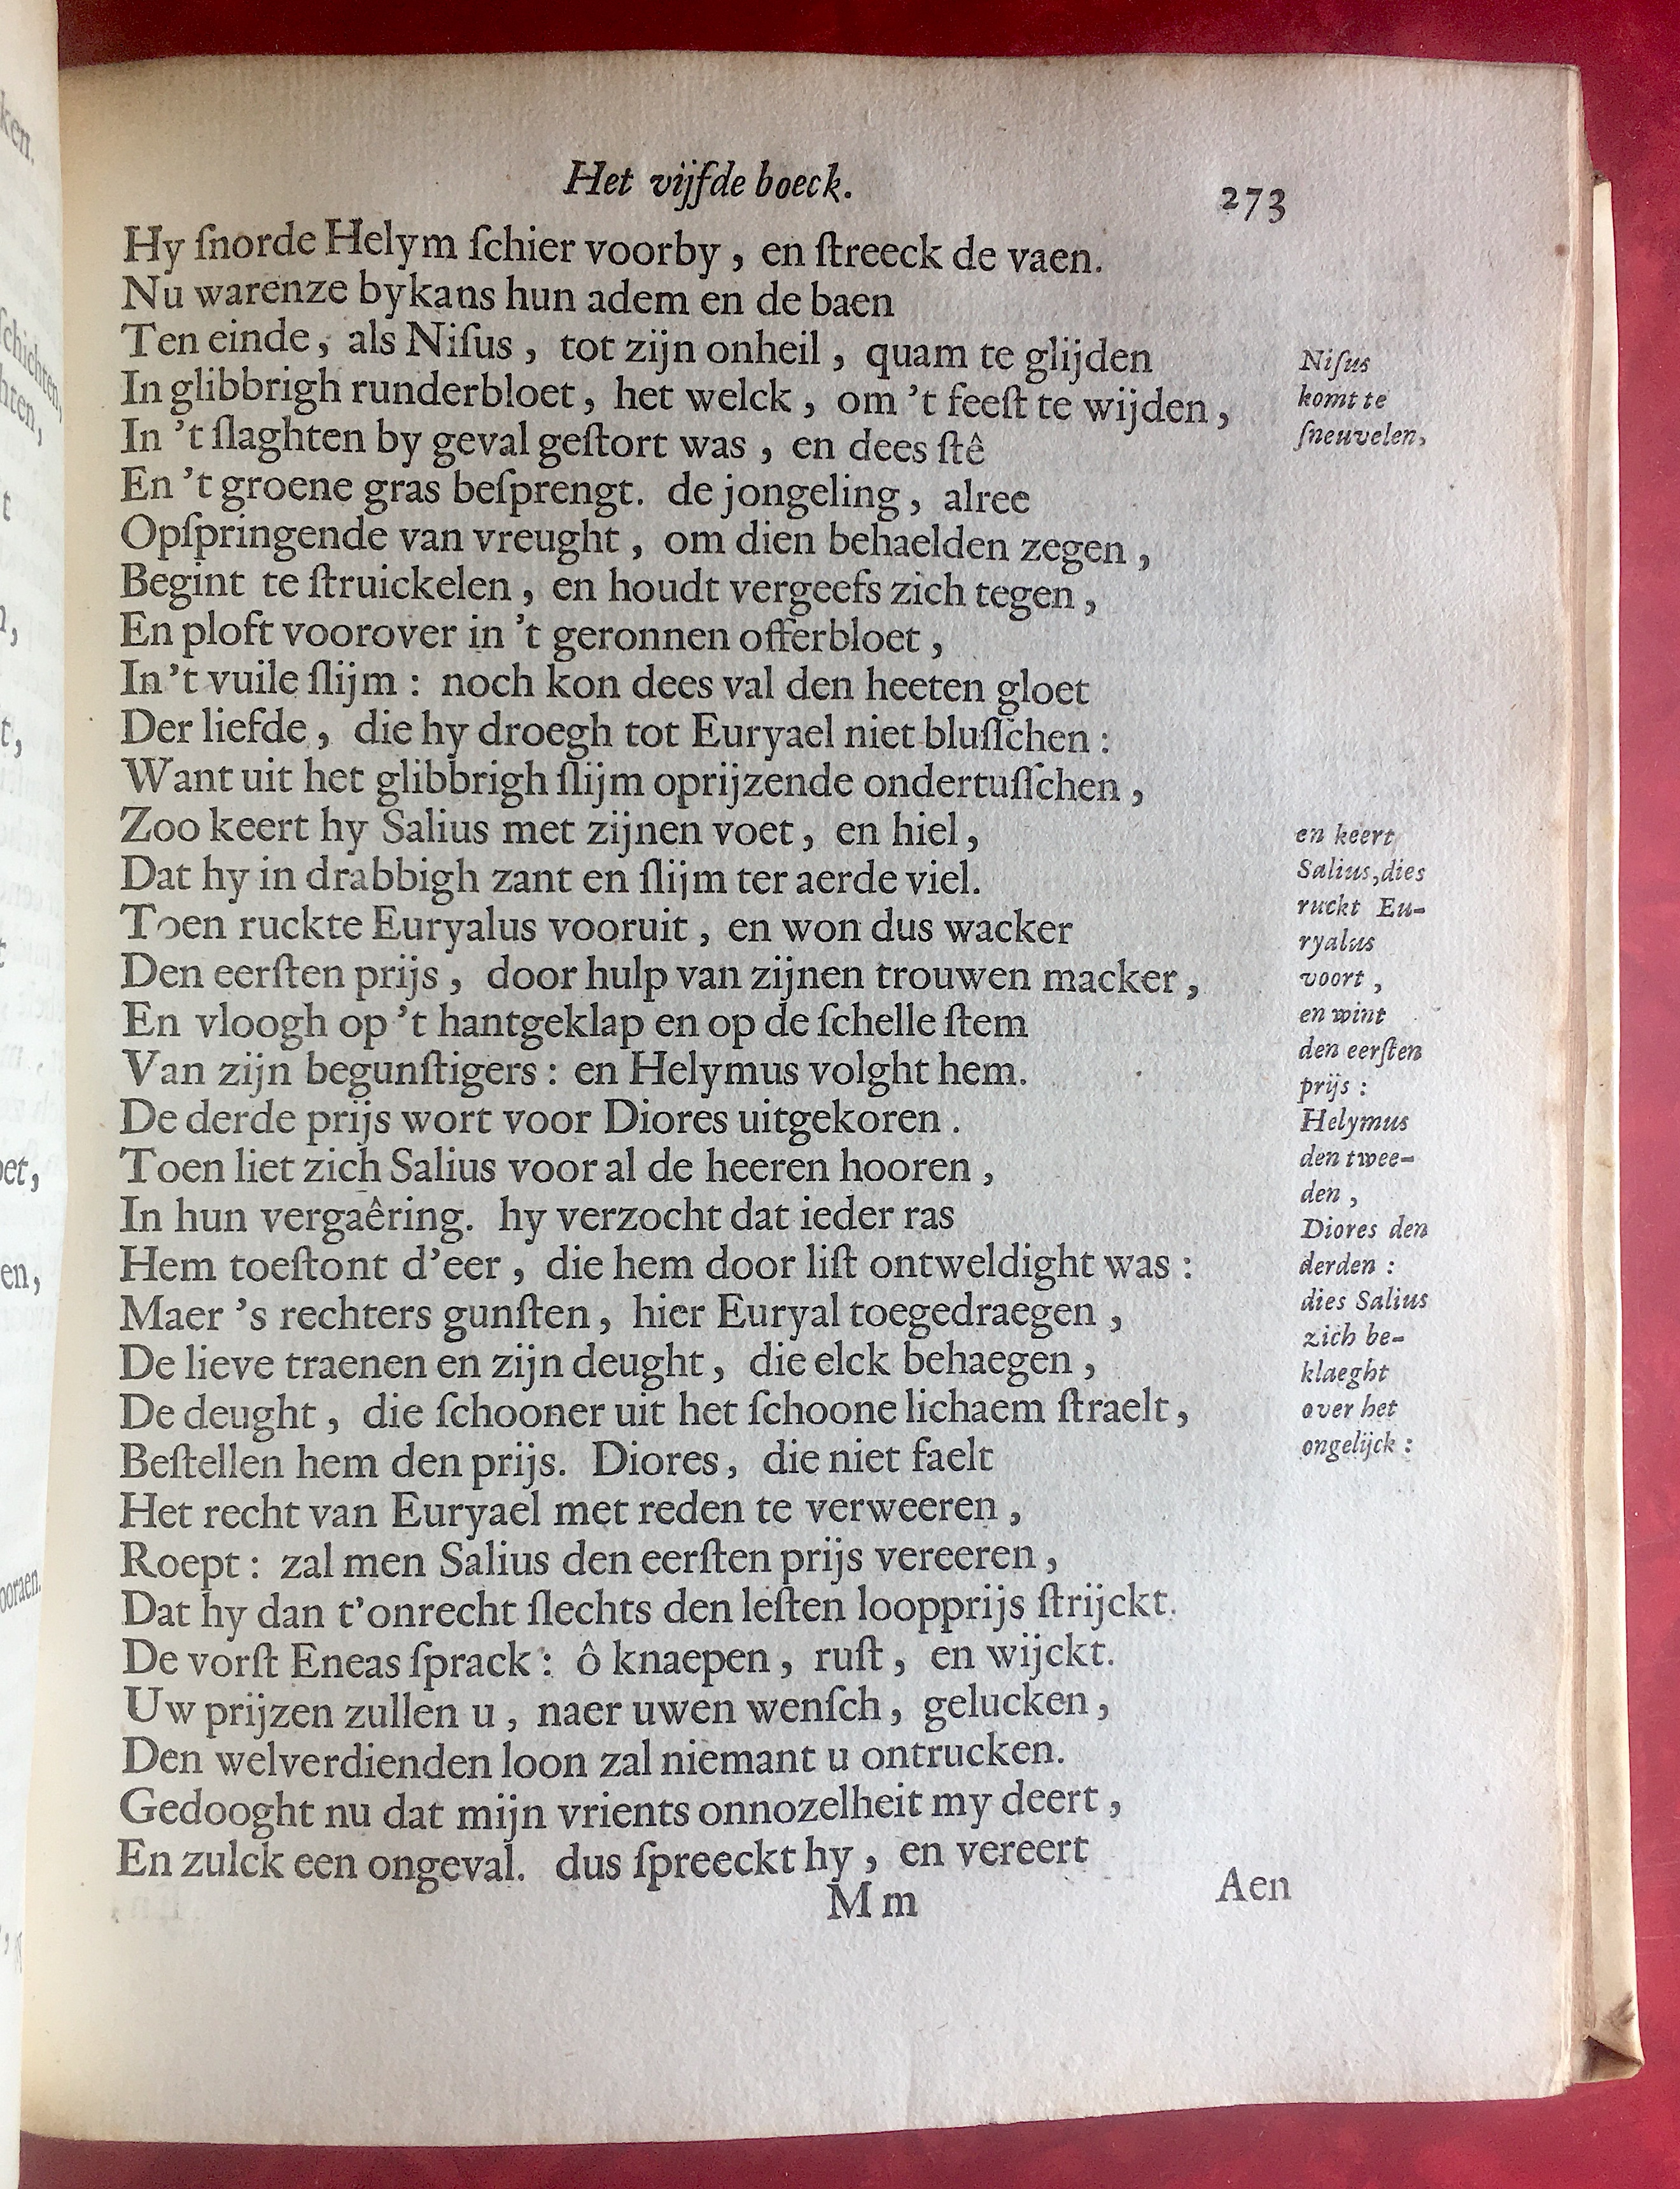 Het vijfde boeck.
273
Hy ſnorde Helym ſchier voorby, en ſtreeck de vaen.
Nu warenze bykans hun adem en de baen
Ten einde, als Niſus, tot zijn onheil, quam te glijden
In glibbrigh runderbloet, het welck, om 't feeſt te wijden,
In 't ſlaghten by geval geſtort was, en dees ſtê
En 't groene gras beſprengt. de jongeling, alree
Opſpringende van vreught, om dien behaelden zegen,
Begint te ſtruickelen, en houdt vergeefs zich tegen,
En ploft voorover in 't geronnen offerbloet,
In 't vuile ſlijm: noch kon dees val den heeten gloet
Der liefde, die hy droegh tot Euryael niet bluſſchen:
Want uit het glibbrigh ſlijm oprijzende ondertuſſchen,
Zoo keert hy Salius met zijnen voet, en hiel,
Dat hy in drabbigh zant en ſlijm ter aerde viel.
Toen ruckte Euryalus vooruit, en won dus wacker
Den eerſten prijs, door hulp van zijnen trouwen macker,
En vloogh op 't hantgeklap en op de ſchelle ſtem
Van zijn begunſtigers: en Helymus volght hem.
De derde prijs wort voor Diores uitgekoren.
Toen liet zich Salius voor al de heeren hooren,
In hun vergaêring. hy verzocht dat ieder ras
Hem toeſtont d'eer, die hem door liſt ontweldight was:
Maer 's rechters gunſten, hier Euryal toegedraegen,
De lieve traenen en zijn deught, die elck behaegen,
De deught, die ſchooner uit het ſchoone lichaem ſtraelt,
Beſtellen hem den prijs. Diores, die niet faelt
Het recht van Euryael met reden te verweeren,
Roept: zal men Salius den eerſten prijs vereeren,
Dat hy dan t'onrecht ſlechts den leſten loopprijs ſtrijckt.
De vorſt Eneas ſprack: ô knaepen, ruſt, en wijckt.
Uw prijzen zullen u, naer uwen wenſch, gelucken,
Den welverdienden loon zal niemant u ontrucken.
Gedooght nu dat mijn vrients onnozelheit my deert,
En zulck een ongeval. dus ſpreeckt hy, en vereert
Mm
Aen
Niſus
komt te
ſneuvelen,
en keert
Salius, dies
ruckt Eu-
ryalus
voort,
en wint
den eerſten
prijs:
Helymus
den twee-
den,
Diores den
derden:
dies Salius
zich be-
klaeght
over het
ongelijck:
ken.
ſchichten,
hten,
t
t,
oet,
en,
ooraen.